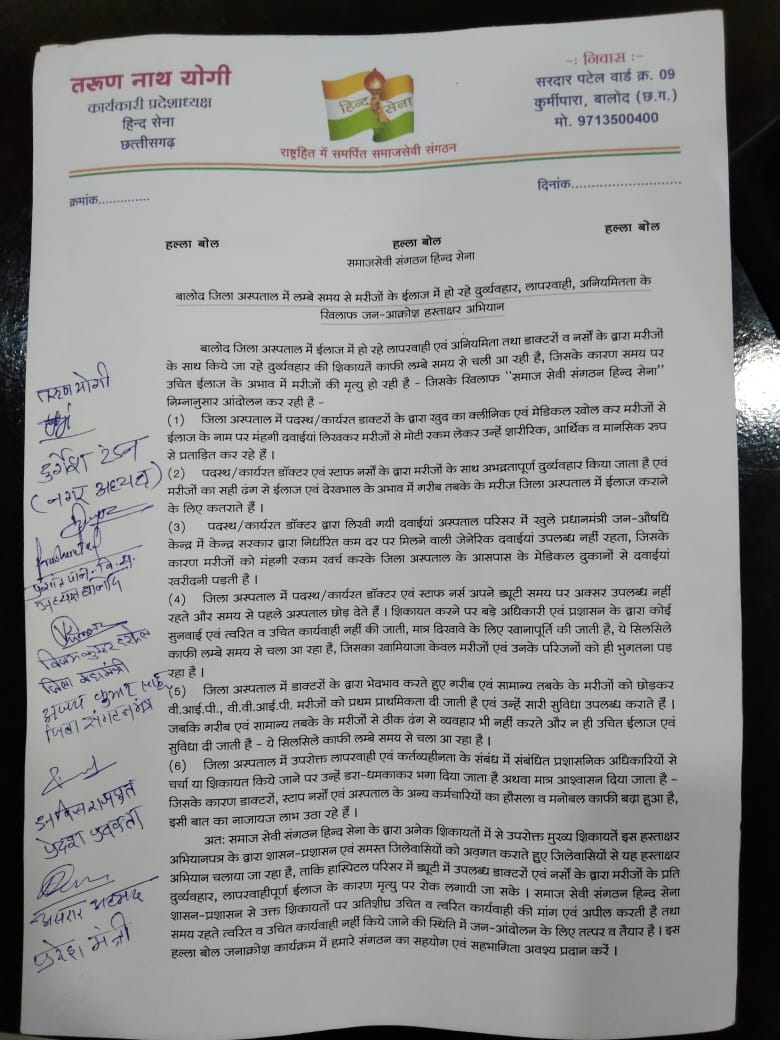 तरूण नाथ योगी
कार्यकारी प्रदेशाध्यक्ष
हिन्द सेना
छत्तीसगढ़
हिन्द सेना
राष्ट्रहित में समर्पित समाजसेवी संगठन
-: निवास :-
सरदार पटेल वार्ड क्र. 09
कुर्मीपारा, बालोद (छ.ग.)
मो. 9713500400
क्रमांक..............
दिनांक............................
हल्ला बोल हल्ला बोल हल्ला बोल
समाजसेवी संगठन हिन्द सेना
बालोद जिला अस्पताल में लम्बे समय से मरीजों के ईलाज में हो रहे दुर्व्यवहार, लापरवाही, अनियमितता के
खिलाफ जन-आक्रोश हस्ताक्षर अभियान
बालोद जिला अस्पताल में ईलाज में हो रहे लापरवाही एवं अनियमिता तथा डाक्टरों व नर्सों के द्वारा मरीजों
के साथ किये जा रहे दुर्व्यवहार की शिकायतें काफी लम्बे समय से चली आ रही है, जिसके कारण समय पर
उचित ईलाज के अभाव में मरीजों की मृत्यु हो रही है - जिसके खिलाफ "समाज सेवी संगठन हिन्द सेना"
निम्नानुसार आंदोलन कर रही है -
(1) जिला अस्पताल में पदस्थ/कार्यरत डाक्टरों के द्वारा खुद का क्लीनिक एवं मेडिकल खोल कर मरीजों से
ईलाज के नाम पर मंहगी दवाईयां लिखकर मरीजों से मोटी रकम लेकर उन्हें शारीरिक, आर्थिक व मानसिक रूप
से प्रताड़ित कर रहे हैं।
(2) पदस्थ/कार्यरत डॉक्टर एवं स्टाफ नर्सों के द्वारा मरीजों के साथ अभद्रतापूर्ण दुर्व्यवहार किया जाता है एवं
मरीजों का सही ढंग से ईलाज एवं देखभाल के अभाव में गरीब तबके के मरीज जिला अस्पताल में ईलाज कराने
के लिए कतराते हैं।
(3) पदस्थ/कार्यरत डॉक्टर द्वारा लिखी गयी दवाईयां अस्पताल परिसर में खुले प्रधानमंत्री जन-औषधि
केन्द्र में केन्द्र सरकार द्वारा निर्धारित कम दर पर मिलने वाली जेनेरिक दवाईयां उपलब्ध नहीं रहता, जिसके
कारण मरीजों को मंहगी रकम खर्च करके जिला अस्पताल के आसपास के मेडिकल दुकानों से दवाईयां
खरीदनी पड़ती है।
(4) जिला अस्पताल में पदस्थ/कार्यरत डॉक्टर एवं स्टाफ नर्स अपने ड्यूटी समय पर अक्सर उपलब्ध नहीं
रहते और समय से पहले अस्पताल छोड़ देते हैं। शिकायत करने पर बड़े अधिकारी एवं प्रशासन के द्वारा कोई
सुनवाई एवं त्वरित व उचित कार्यवाही नहीं की जाती, मात्र दिखावे के लिए खानापूर्ति की जाती है, ये सिलसिले
काफी लम्बे समय से चला आ रहा है, जिसका खामियाजा केवल मरीजों एवं उनके परिजनों को ही भुगतना पड़
रहा है।
(5) जिला अस्पताल में डाक्टरों के द्वारा भेदभाव करते हुए गरीब एवं सामान्य तबके के मरीजों को छोड़कर
वी.आई.पी., वी.वी.आई.पी. मरीजों को प्रथम प्राथमिकता दी जाती है एवं उन्हें सारी सुविधा उपलब्ध कराते हैं।
जबकि गरीब एवं सामान्य तबके के मरीजों से ठीक ढंग से व्यवहार भी नहीं करते और न ही उचित ईलाज एवं
सुविधा दी जाती है - ये सिलसिले काफी लम्बे समय से चला आ रहा है।
(6) जिला अस्पताल में उपरोक्त लापरवाही एवं कर्तव्यहीनता के संबंध में संबंधित प्रशासनिक अधिकारियों से
चर्चा या शिकायत किये जाने पर उन्हें डरा-धमकाकर भगा दिया जाता है अथवा मात्र आश्वासन दिया जाता है -
जिसके कारण डाक्टरों, स्टाप नर्सों एवं अस्पताल के अन्य कर्मचारियों का हौसला व मनोबल काफी बढ़ा हुआ है,
इसी बात का नाजायज लाभ उठा रहे हैं।
अत: समाज सेवी संगठन हिन्द सेना के द्वारा अनेक शिकायतों में से उपरोक्त मुख्य शिकायतें इस हस्ताक्षर
अभियानपत्र के द्वारा शासन-प्रशासन एवं समस्त जिलेवासियों को अवगत कराते हुए जिलेवासियों से यह हस्ताक्षर
अभियान चलाया जा रहा है, ताकि हास्पिटल परिसर में ड्यूटी में उपलब्ध डाक्टरों एवं नर्सों के द्वारा मरीजों के प्रति
दुर्व्यवहार, लापरवाहीपूर्ण ईलाज के कारण मृत्यु पर रोक लगायी जा सके। समाज सेवी संगठन हिन्द सेना
शासन-प्रशासन से उक्त शिकायतों पर अतिशीघ्र उचित व त्वरित कार्यवाही की मांग एवं अपील करती है तथा
समय रहते त्वरित व उचित कार्यवाही नहीं किये जाने की स्थिति में जन-आंदोलन के लिए तत्पर व तैयार है। इस
हल्ला बोल जनाक्रोश कार्यक्रम में हमारे संगठन का सहयोग एवं सहभागिता अवश्य प्रदान करें।
तरुण योगी
(नगर अध्यक्ष)
जिला महामंत्री
जिला संगठन मंत्री
प्रदेश प्रवक्ता
प्रदेश मंत्री